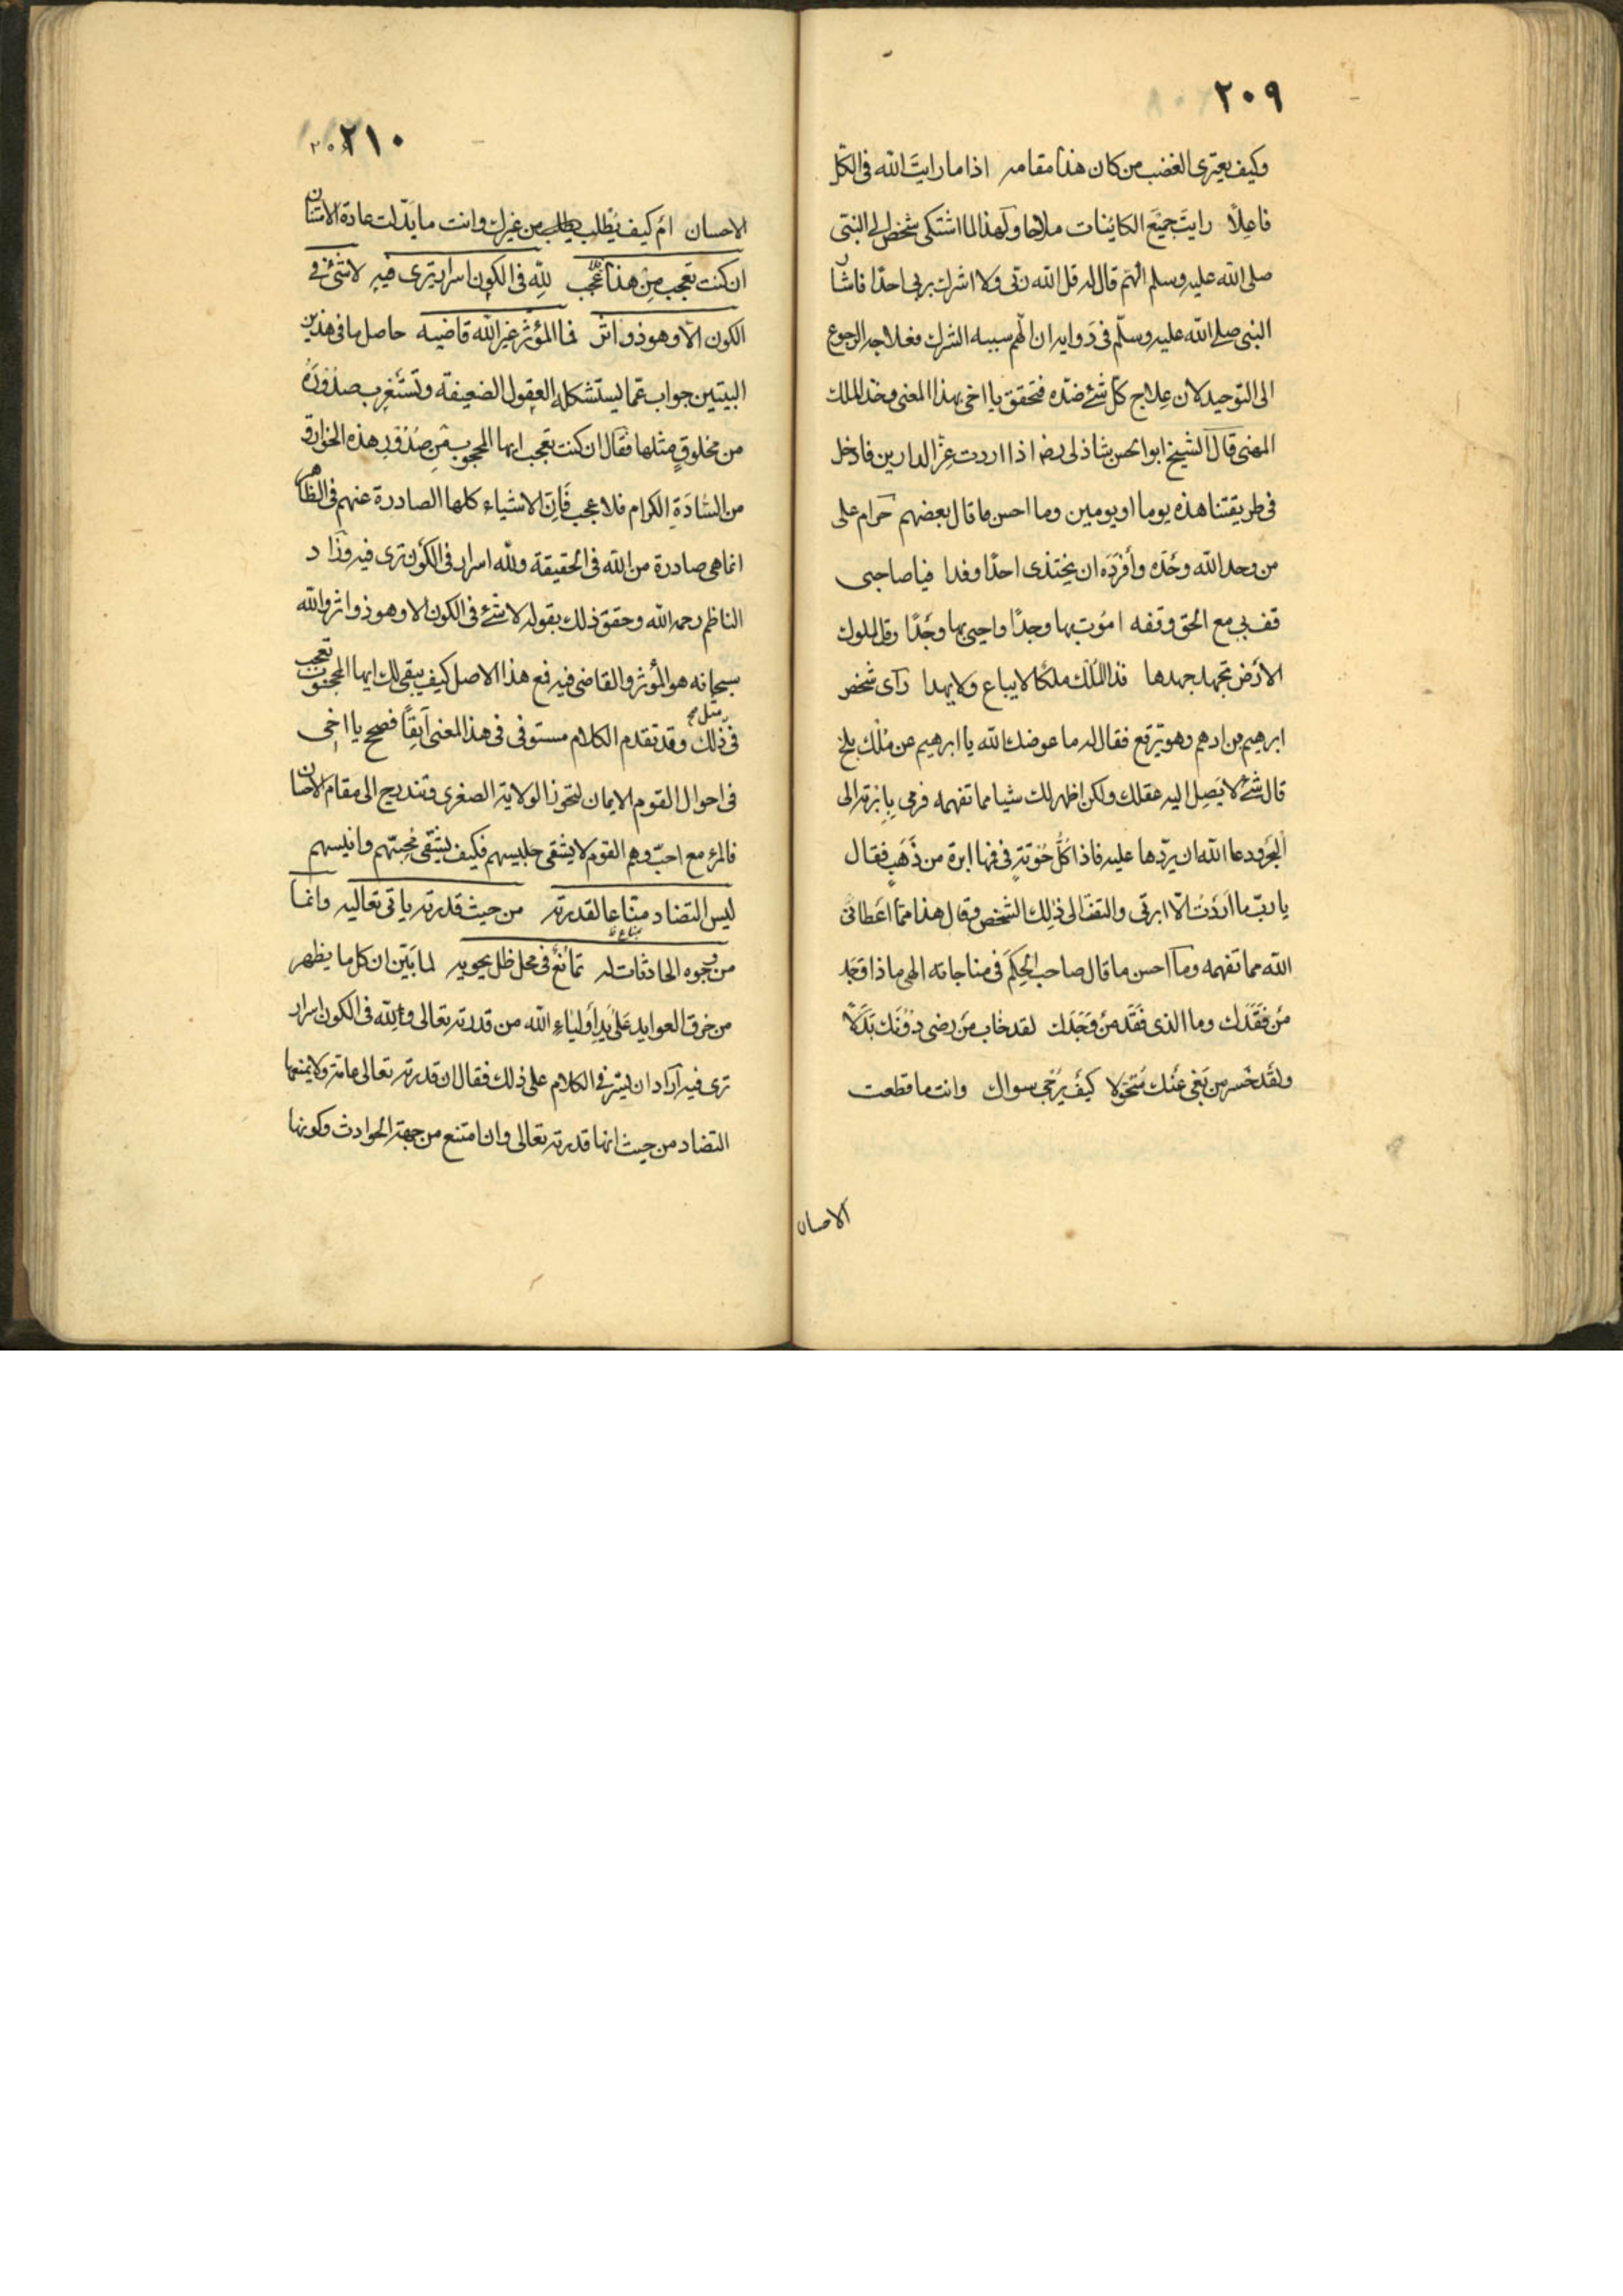 ٢٠٩
وكيف يعترى الغضب من كان هذا مقامه اذا ما رايتَ الله فى الكلّ
فاعِلاً رايتَ جميعَ الكائِنات ملاحا ولهذا لما اشتكى شخص الى النبى
صلى الله عليه وسلم الهَم قال له قل الله ربّى ولا اشرك بربى احدًا فاشار
النبى صلى الله عليه وسلّم فى دوايه ان الهم سببه الشرك فعلاجه الرجوع
الى التوحيد لان عِلاج كلّ شئ ضدّه فتحقق يا اخى بهذا المعنى وخذ الملك
المهنى قال الشيخ ابو الحسن شاذلى رضه اذا اردت عِزّ الدارين فادخل
فى طريقتنا هذه يوما او يومين وما احسن ما قال بعضهم حرام على
من وحد الله وحْدَه وأفرَدَه ان يحتذى احدًا وفدا فيا صاحبى
قف بى مع الحق وقفه امُوت بها وجدًا واحيى بها وجْدًا وقل لملوك
الارْض تجهد جهدها فذا المُلْك ملكًا لا يباع ولا يهدا رآى شخص
ابرهيم بن ادهم وهو يرقع فقال له ما عوضك الله يا ابرهيم عن مُلك بلخ
قال شئ لا يَصِل اليه عقلك ولكن اظهر لك شيا مما تفهمه فرمى بِابْرَته الى
البحر ودعا الله ان يردّها عليه فاذا كلُّ حُوْتَةٍ فى فمها ابرة من ذَهَبٍ فقال
يا ربّ ما اَرَدْتُ الّا ابرتى والتفتَ الى ذٰلِك الشخص وقال هذا ممّا اعَطانى
الله مما تفهمه وما احسن ما قال صاحب الحِكَم فى مناجاته الهى ما ذا وَجَد
مَن فَقَدَك وما الذى فَقَد مَن وَجَدَك لقد خَاب مَن رضى دُوْنَك بَدَلاً
ولَقَد خَسر من بَغى عَنك مُتَحَوّلا كيفَ يُرجى سواك وانت ما قطعت
الاحسان
٢١٠
الاحسان ام كيف يُطلب من غيرك وانت ما بَدّلت عادة الامتنان
ان كنت تعجب مِن هذا فلا عَجب لِلّه فى الكون اسرار ترى فيه لا شئ فى
الكون الّا وهو ذو اثر فما المؤثّر غير الله قاضيه حاصل ما فى هذين
البيتين جواب عمّا يستشكله العقول الضعيفة وتستَغرب صدُوْرَهُ
من مخلوقٍ مثلها فقال ان كنت تعجب ايها المحجوب مِن صُدُوْرِ هذه الخوارق
من السّادَةِ الكرام فلا عجب فَاِنّ الاشياء كلها الصادرة عنهم فى الظاهر
انما هى صادرة من الله فى الحقيقة ولله اسرار فى الكون ترى فيه وزاد
الناظم رحمه الله وحقق ذلك بقوله لا شئ فى الكون الا وهو ذو اثر والله
سبحانه هو المُؤثر والقاضى فيه فمع هذا الاصل كيف يبقى لك ايها المحجوب تعجب
فى مثل ذلك وقد تقدم الكلام مستوفى فى هذا المعنى آنِفًا فصحح يا اخى
فى احوال القوم الايمان لتحوز الولاية الصغرى وتندرج الى مقام الاحسان
فالمرء مع احبّ وهم القوم لا يشقى جليسهم فكيف يشقى مُحِبّهم وانيسهم
ليس التضاد منّاعا لقدرته من حيث قدرته ياتى تعاليه وانما
من وجوه الحادثات له تمانُعٌ فى محل ظل يحويه لما بَيّن ان كل ما يظهر
من خرق العوايد عَلى يَدِ أولياءِ الله من قدرته تعالى وأن لِلّه فى الكون اسرار
ترى فيه اراد ان يشير فى الكلام على ذلك فقال ان قدرته تعالى عامّة ولا يمنعها
التضاد من حيث انها قدرته تعالى وان امتنع من جهة الحوادث وكونها